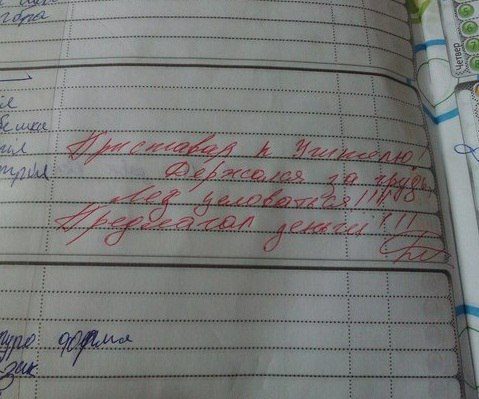 гора
ия
тика
гия
Приставал к Учителю!
Держался за грудь,
Лез целоваться!!!
Предлагал деньги!!!
форма
зык
Четверг